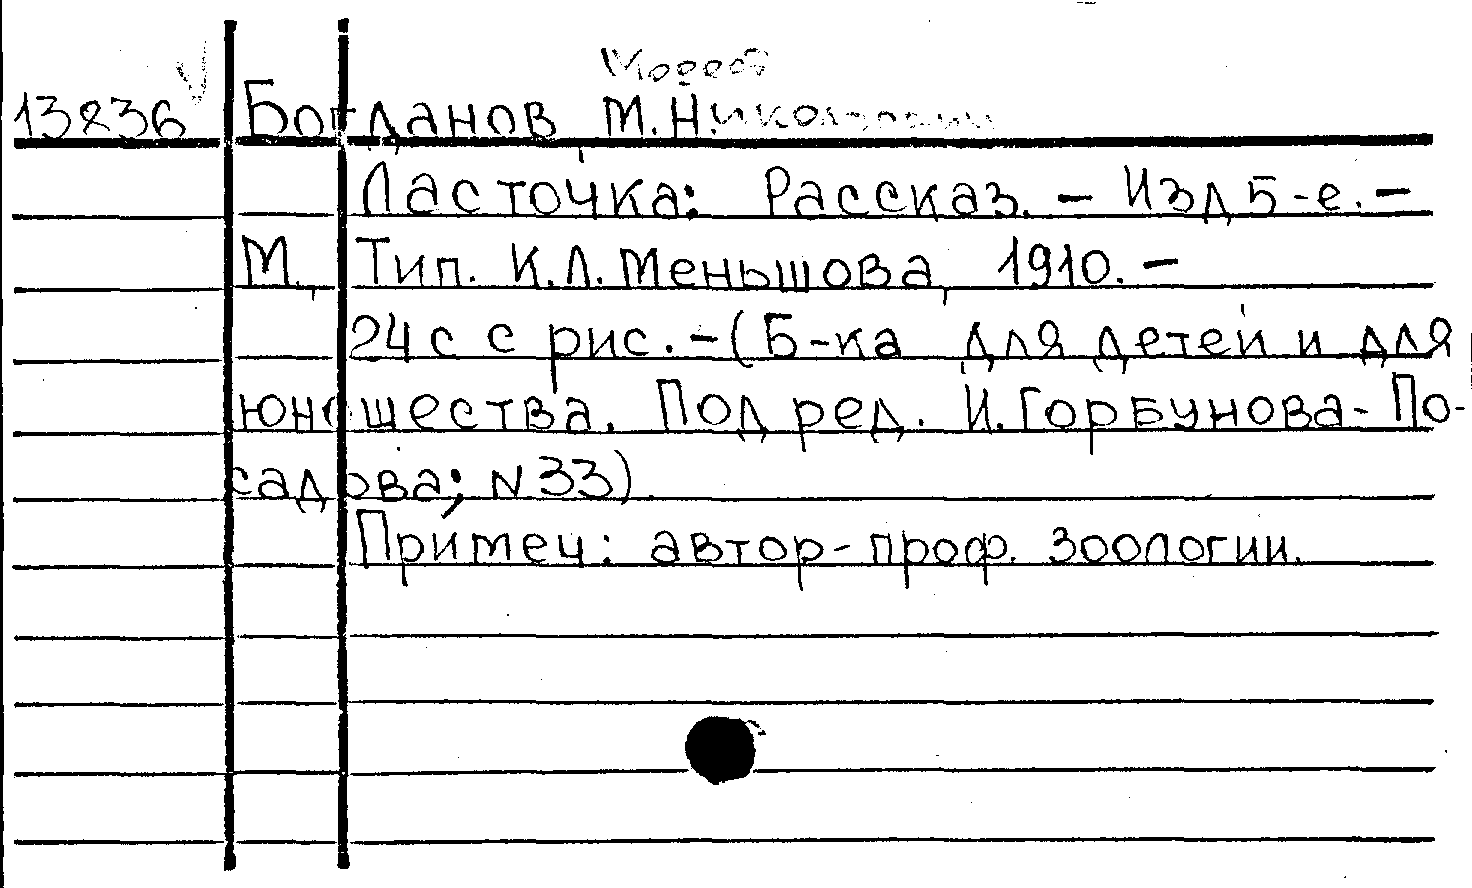 Модест
13836 Богданов М.Николаевич
Ласточка: Рассказ. - Изд 5-е. -
М., Тип. К.Л. Меньшова, 1910. -
24 с с рис. - (Б-ка для детей и для
юношества. Под ред. И. Горбунова-По-
садова; N 33).
Примеч: автор - проф. зоологии.